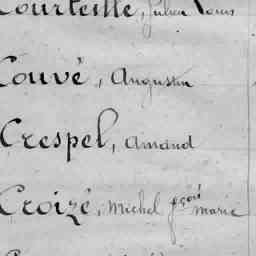 Courteille, Julien Louis
Couvé, Augustin
Crespel, Amand
Croizé, Michel françois marie